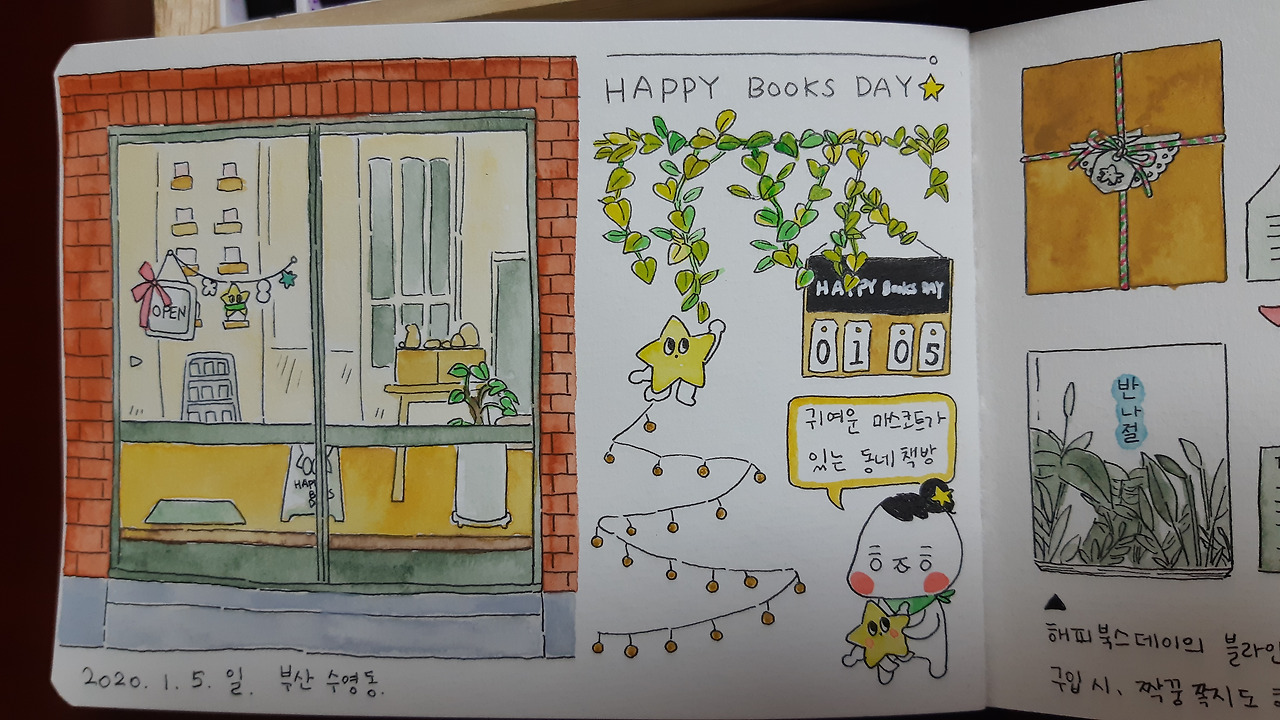 HAPPY BOOKS DAY
OPEN
2020. 1. 5. 일. 부산 수영동.
HAPPY Books DAY
01 05
귀여운 마스코트가
있는 동네 책방
반나절
해피북스데이의 블라인
구입 시, 짝꿍 쪽지도